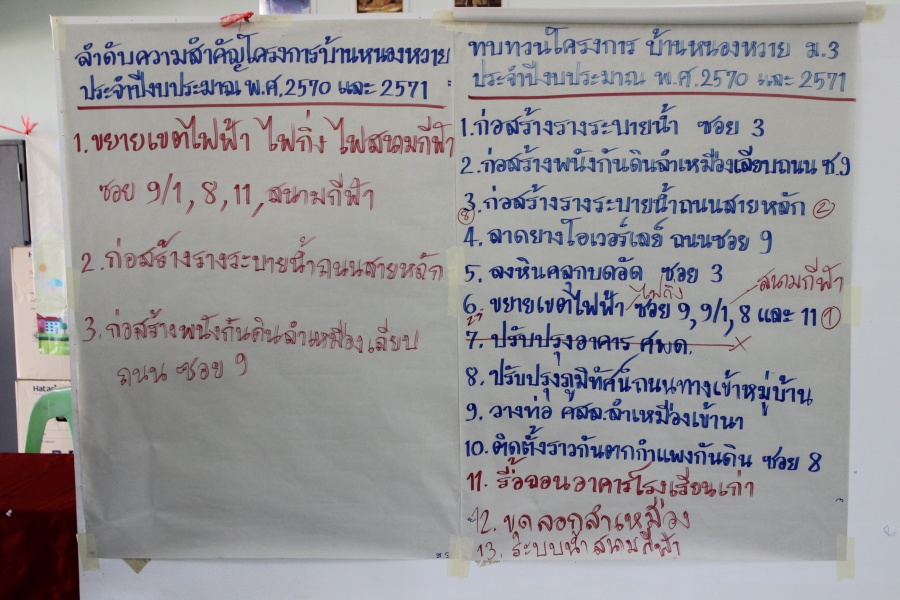 ลำดับความสำคัญโครงการบ้านหนองหวาย
ประจำปีงบประมาณ พ.ศ.2570 และ 2571
1.ขยายเขตไฟฟ้า ไฟกิ่ง ไฟสนามกีฬา
ซอย 9/1, 8, 11, สนามกีฬา
2.ก่อสร้างรางระบายน้ำถนนสายหลัก
3.ก่อสร้างพนังกันดินลำเหมืองเลียบ
ถนน ซอย 9
ทบทวนโครงการ บ้านหนองหวาย ม.3
ประจำปีงบประมาณ พ.ศ.2570 และ 2571
1.ก่อสร้างรางระบายน้ำ ซอย 3
2.ก่อสร้างพนังกันดินลำเหมืองเลียบถนน ซ.9
3.ก่อสร้างรางระบายน้ำถนนสายหลัก ②
4. ลาดยางโอเวอร์เลย์ ถนนซอย 9
5. ลงหินคลุกบดอัด ซอย 3
ไฟกิ่ง สนามกีฬา
6. ขยายเขตไฟฟ้า ซอย 9, 9/1, 8 และ 11 ①
7. ปรับปรุงอาคาร ศพด.
8. ปรับปรุงภูมิทัศน์ถนนทางเข้าหมู่บ้าน
9. วางท่อ คสล.ลำเหมืองเข้านา
10. ติดตั้งราวกันตกกำแพงกันดิน ซอย 8
11. รื้อถอนอาคารโรงเรียนเก่า
12. ขุดลอกลำเหมือง
13. ระบบน้ำสนามกีฬา